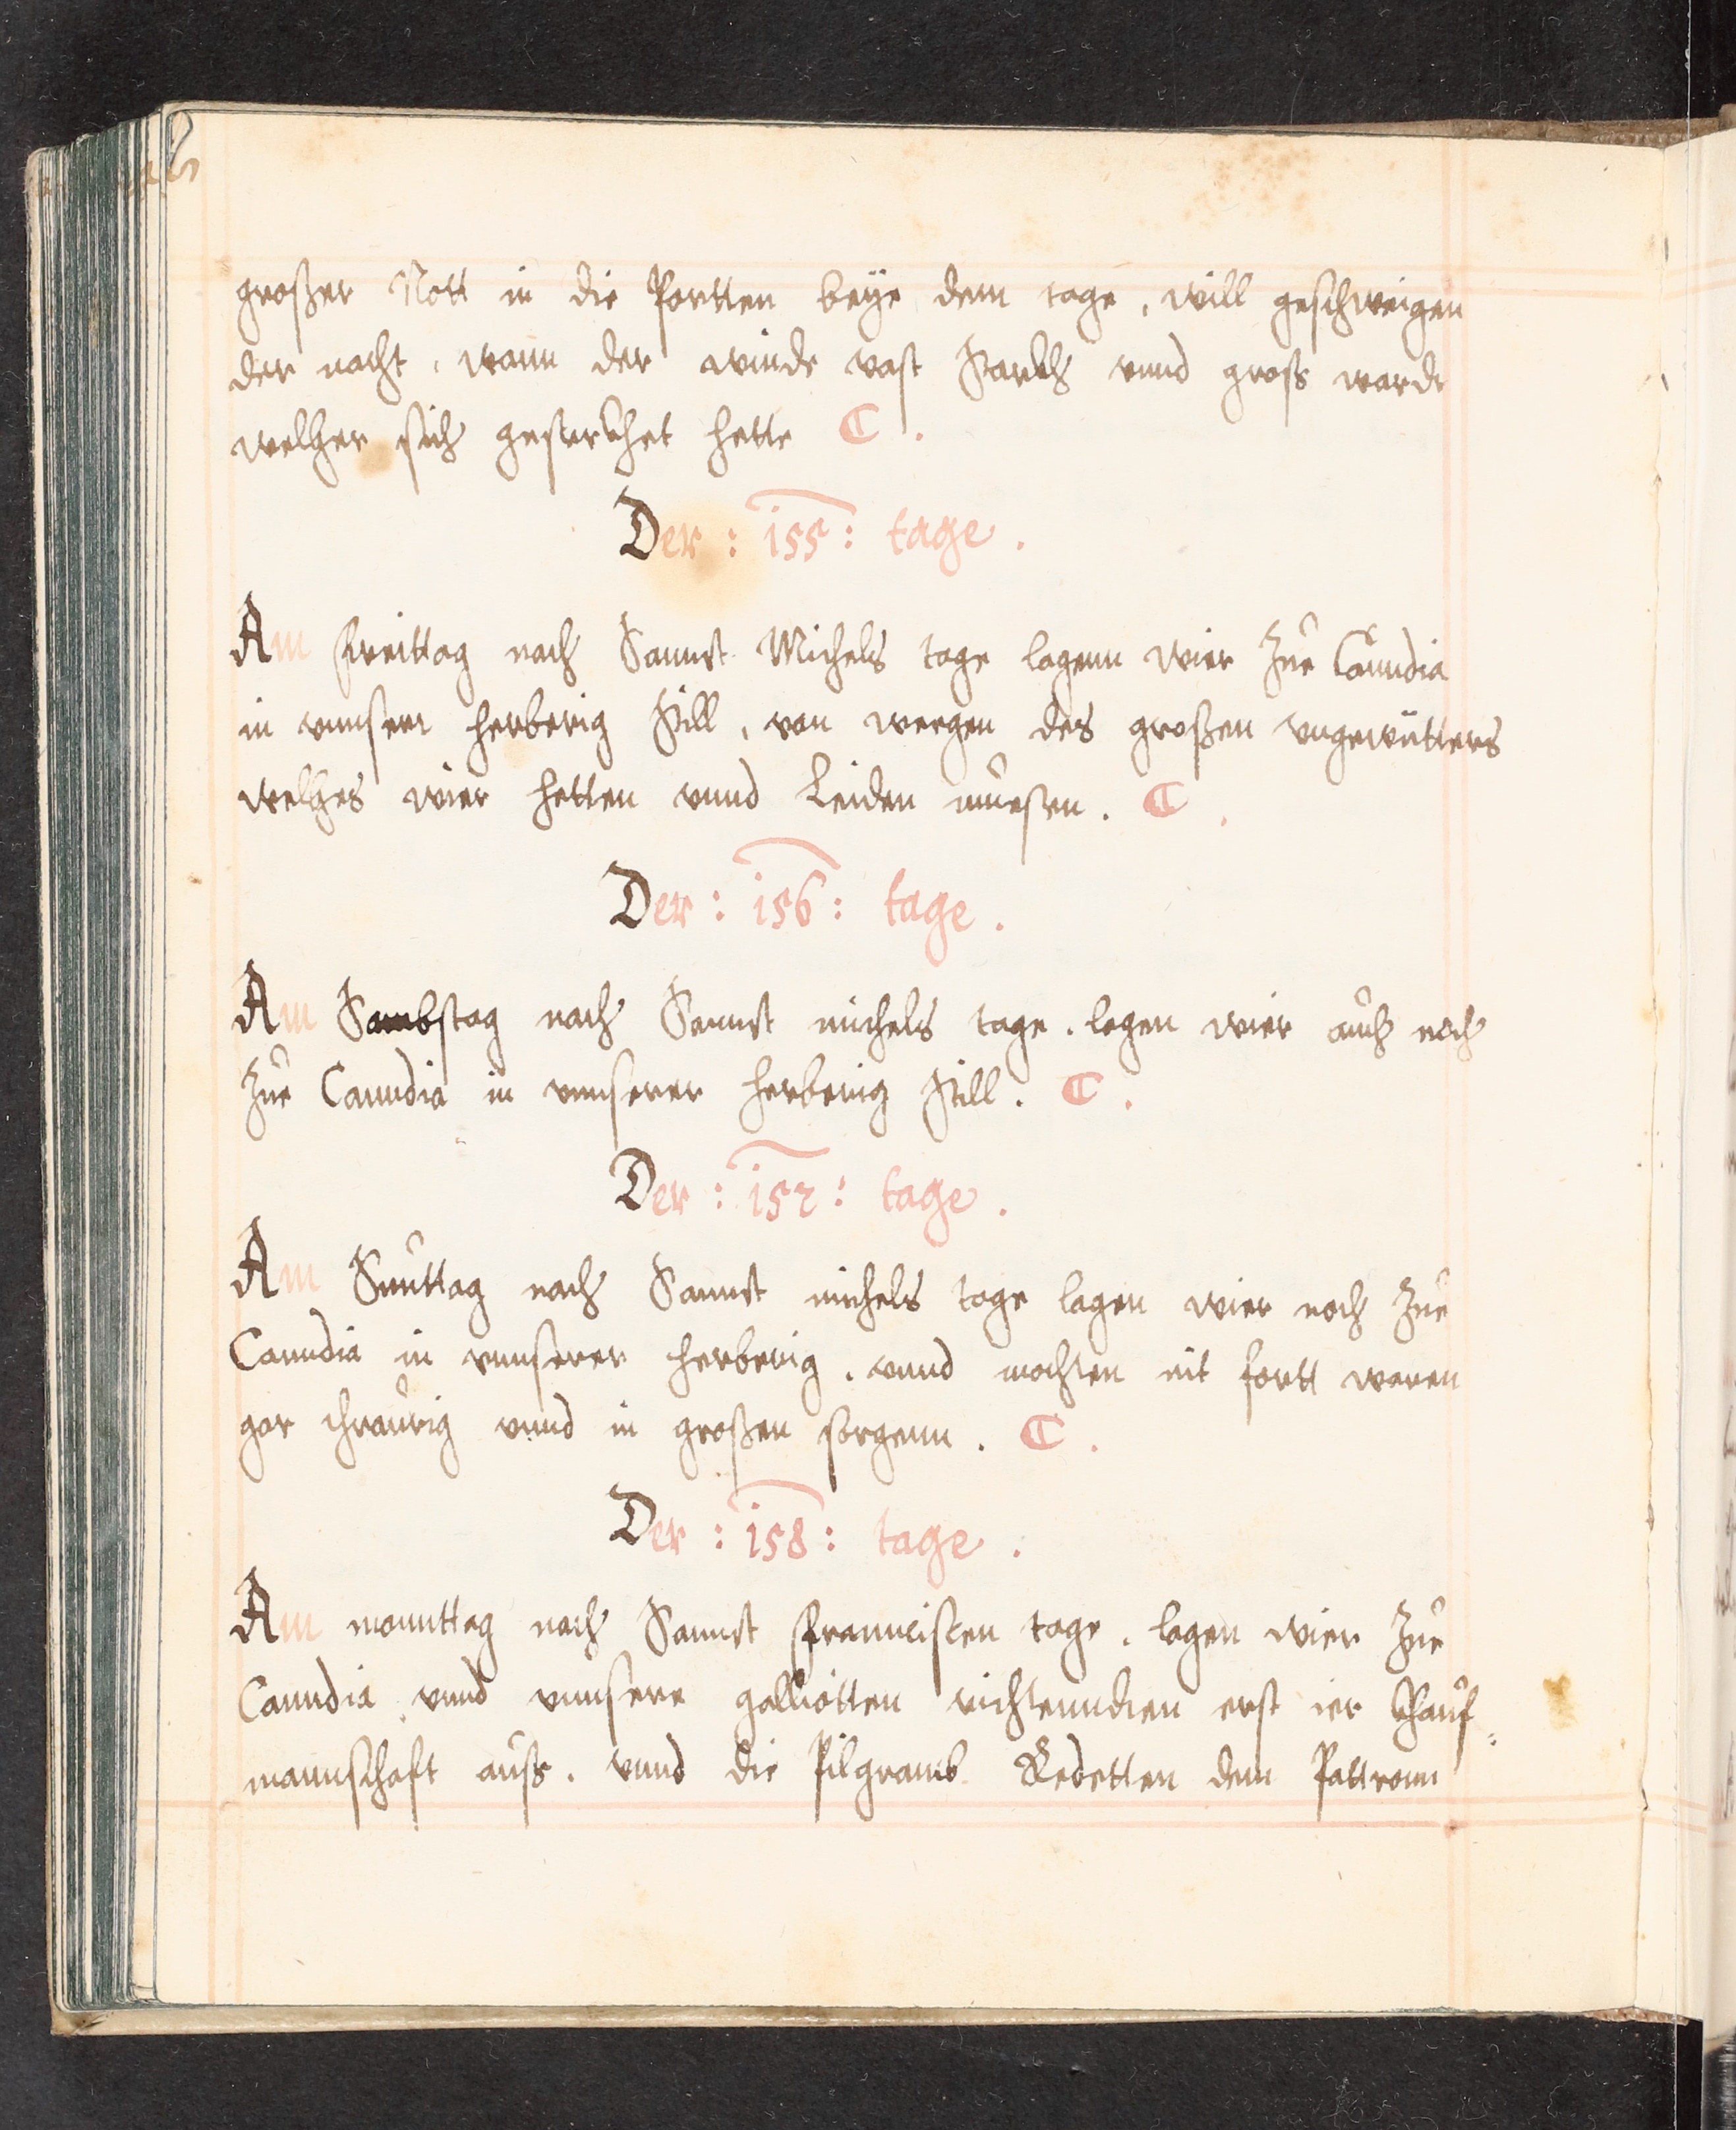 großer Nott in die Portten beÿe dem tage, will geschweigen
der nacht, wann der winde vast starckh vnnd gross warde
welher sich gesterckhet hette C.
Der : 155 : tage .
Am freittag nach Sannst Michels tage lagenn wier Zue Canndia
in vnnserr herberig still, von weegen des großen vngewütters
welhes wier hetten vnnd Leiden muesßen . C .
Der : 156 : tage .
Am Sambstag nach Sannst michels tage . lagen wier auch noch
Zue Canndia in vnnserer herberig still . C .
Der : 157 : tage .
Am Sunttag nach Sannst michels tage lagen wier noch Zue
Canndia in vnnserer herberig . vnnd mochten nit fortt waren
gar thraurig vnnd in großen sorgenn . C .
Der : 158 : tage .
Am monnttag nach Sannst Franncisten tage . lagen wier Zue
Canndia vnnd vnnsere galliotten richtenndten erst ier Khauf-
mannschaft auss . vnnd die Pilgramb Redetten dem Pattronn